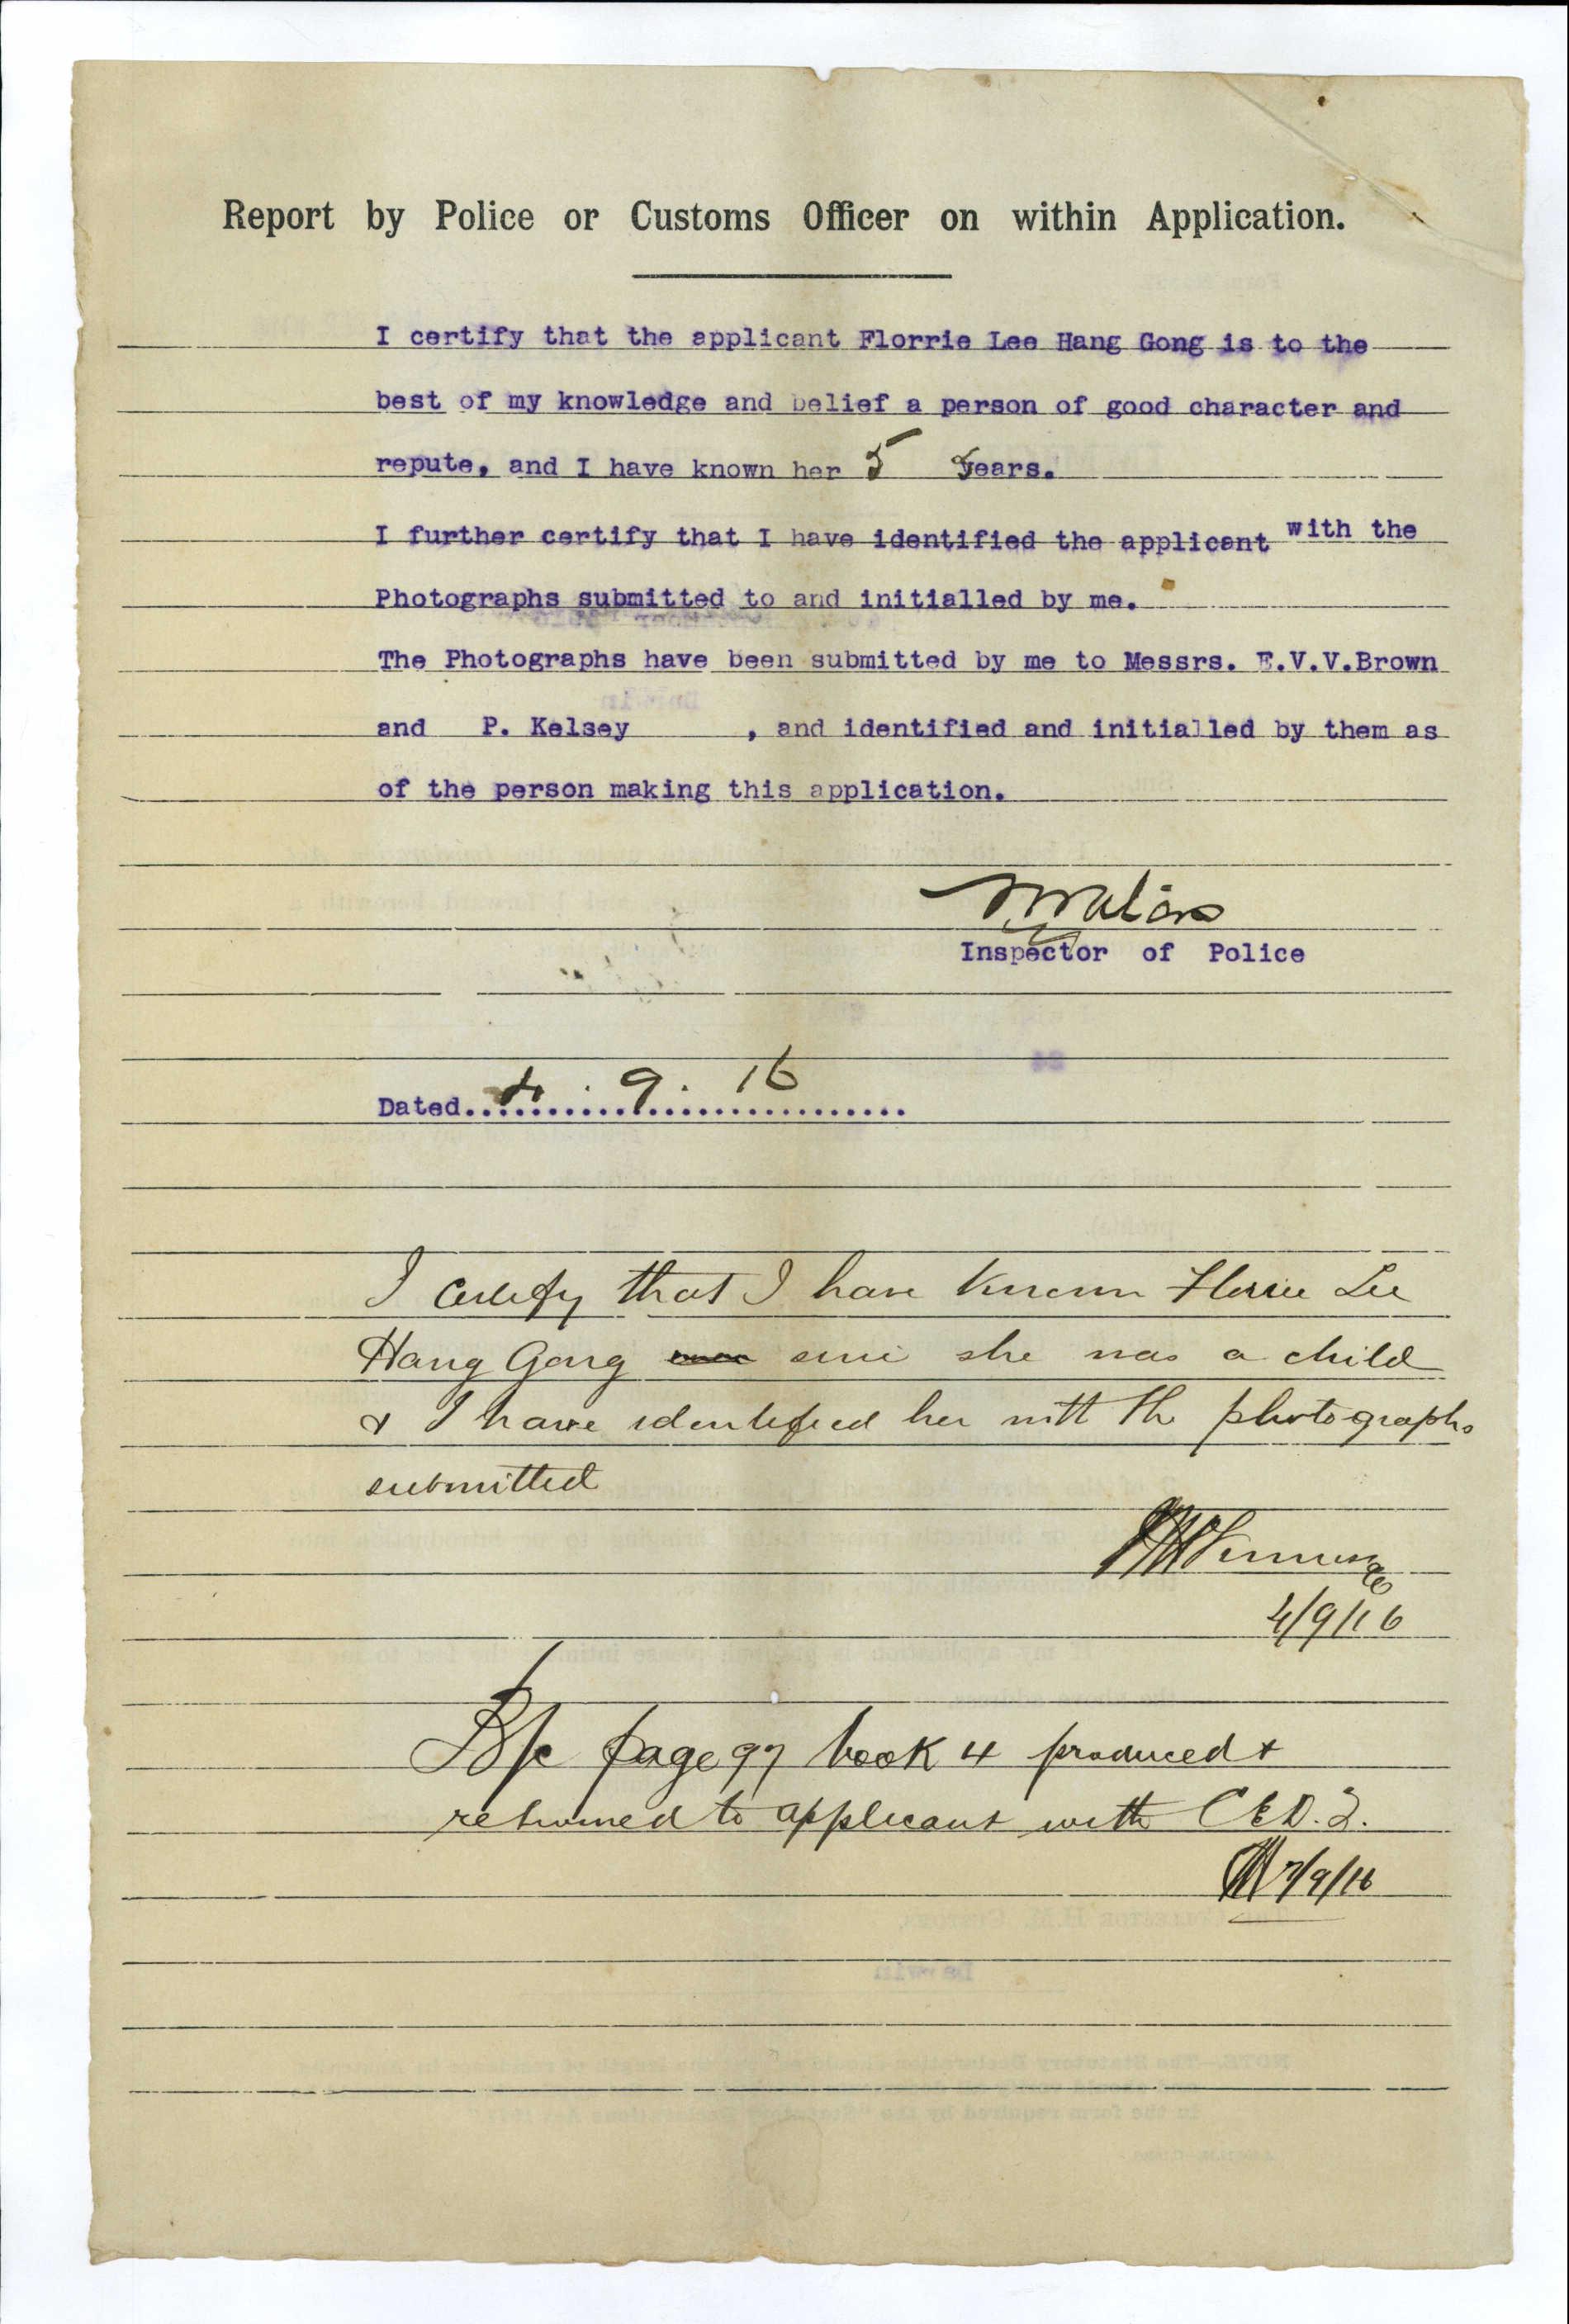 Report by Police or Customs Officer on within Application.
I certify that the applicant Florrie Lee Hang Gong is to the
best of my knowledge and belief a person of good character and
repute, and I have known her 5 years.
I further certify that I have identified the applicant with the
Photographs submitted to and initialled by me.
The Photographs have been submitted by me to Messrs. E.V.V.Brown
and P. Kelsey , and identified and initialled by them as
of the person making this application.
Inspector of Police
Dated..............................4 . 9 . 16
I certify that I have known Florrie Lee
Hang Gong since she was a child
& I have identified her with the photographs
submitted
4/9/16
B/c page 97 book 4 produced &
returned to applicant with CEDT.
7/9/16